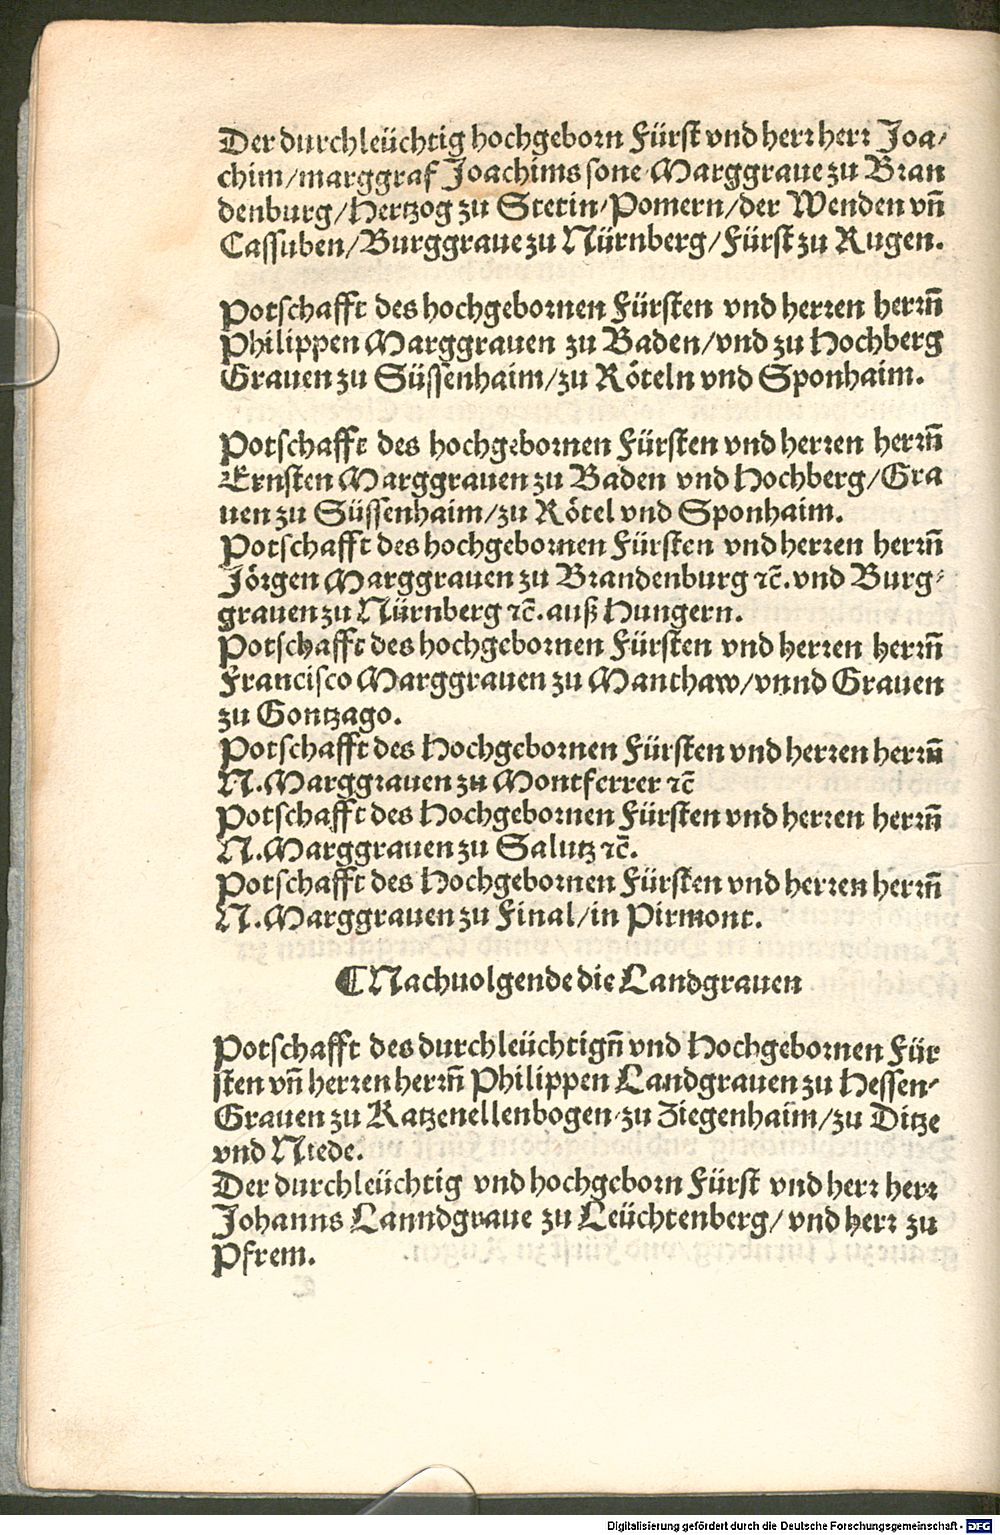 Der durchleüchtig hochgeborn Fürst vnd herr herr Joa-
chim/marggraf Joachims sone Marggraue zu Bran
denburg/Hertzog zu Stetin/Pomern/der Wenden vñ
Cassuben/Burggraue zu Nürnberg/Fürst zu Rugen.
Potschafft des hochgebornen Fürsten vnd herren herrñ
Philippen Marggrauen zu Baden/vnd zu Hochberg
Grauen zu Süssenhaim/zu Röteln vnd Sponhaim.
Potschafft des hochgebornen Fürsten vnd herren herrñ
Ernsten Marggrauen zu Baden vnd Hochberg/Gra
uen zu Süssenhaim/zu Rötel vnd Sponhaim.
Potschafft des hochgebornen Fürsten vnd herren herrñ
Jörgen Marggrauen zu Brandenburg ꝛc̄. vnd Burg-
grauen zu Nürnberg ꝛc̄. auß Hungern.
Potschafft des hochgebornen Fürsten vnd herren herrñ
Francisco Marggrauen zu Manthaw/vnnd Grauen
zu Gontzago.
Potschafft des Hochgebornen Fürsten vnd herren herrñ
N. Marggrauen zu Montferrer ꝛc̄
Potschafft des Hochgebornen Fürsten vnd herren herrñ
N. Marggrauen zu Salutz ꝛc̄.
Potschafft des Hochgebornen Fürsten vnd herren herrñ
N. Marggrauen zu Final/in Pirmont.
¶Nachuolgende die Landgrauen
Potschafft des durchleüchtigñ vnd Hochgebornen Für
sten vñ herren herrñ Philippen Landgrauen zu Hessen-
Grauen zu Katzenellenbogen-zu Ziegenhaim/zu Ditze
vnd Niede.
Der durchleüchtig vnd hochgeborn Fürst vnd herr herr
Johanns Lanndgraue zu Leüchtenberg/vnd herr zu
Pfrem.
Digitalisierung gefördert durch die Deutsche Forschungsgemeinschaft - DFG